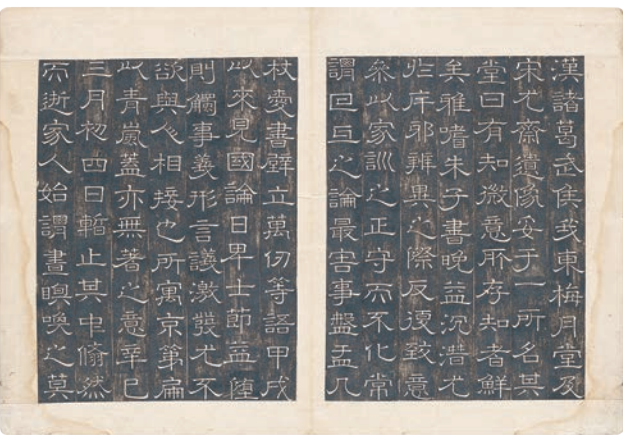 漢諸葛武侯我東梅月堂及
宋尤齋遺像妥于一所名其
堂曰有知微意所存知者鮮
矣雅嗜朱子書晚益沉潛尤
於斥邪辨異之際反復致意
叅以家訓之正守而不化常
謂回互之論最害事盤盂几
杖爰書壁立萬仞等語甲戌
以來見國論日卑士節益
則觸事義形言議激發尤不
欲與人相接也所寓京第扁
以青嵐蓋亦無著之意辛巳
三月初四日暫止其中翛然
而逝家人始謂晝瞑喚之莫